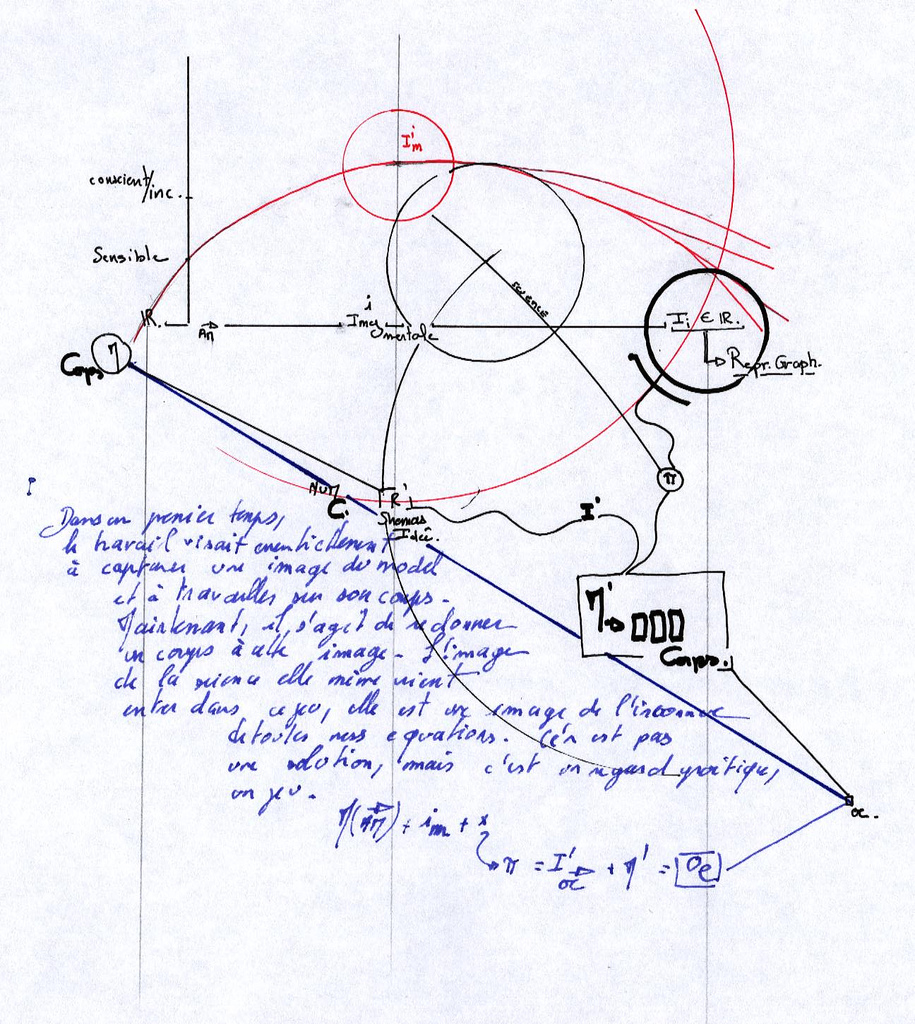 I'm
conscient/
inc.
Sensible
science
IR.
Aη
i
Img
mentale
Ii ∈ IR.
Repr. Graph.
Corps
η
π
C.
R'
Idée.
I'
η'
Corps.
Dans un premier temps,
le travail visait
à capturer une image du model
et à travailler sur son corps.
Maintenant, il s'agit de redonner
un corps à cette image. L'image
de la science elle même vient
entrer dans ce jeu, elle est une image de l'inconnue
de toutes ness equations. Ce n'est pas
une solution, mais c'est un regard poitique,
un jeu.
η(Aη) + im + x
π = I' + η' = Oe
oc
oc.